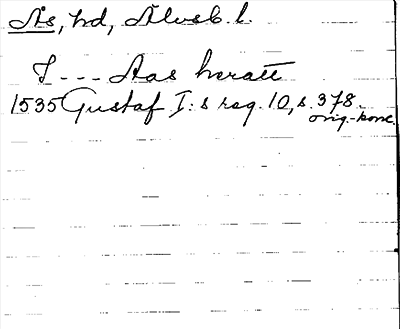 Ås, hd, Älvsb. l.
I --- Aas heratt
1535 Gustaf I:s reg. 10, s. 378.
orig.-konc.